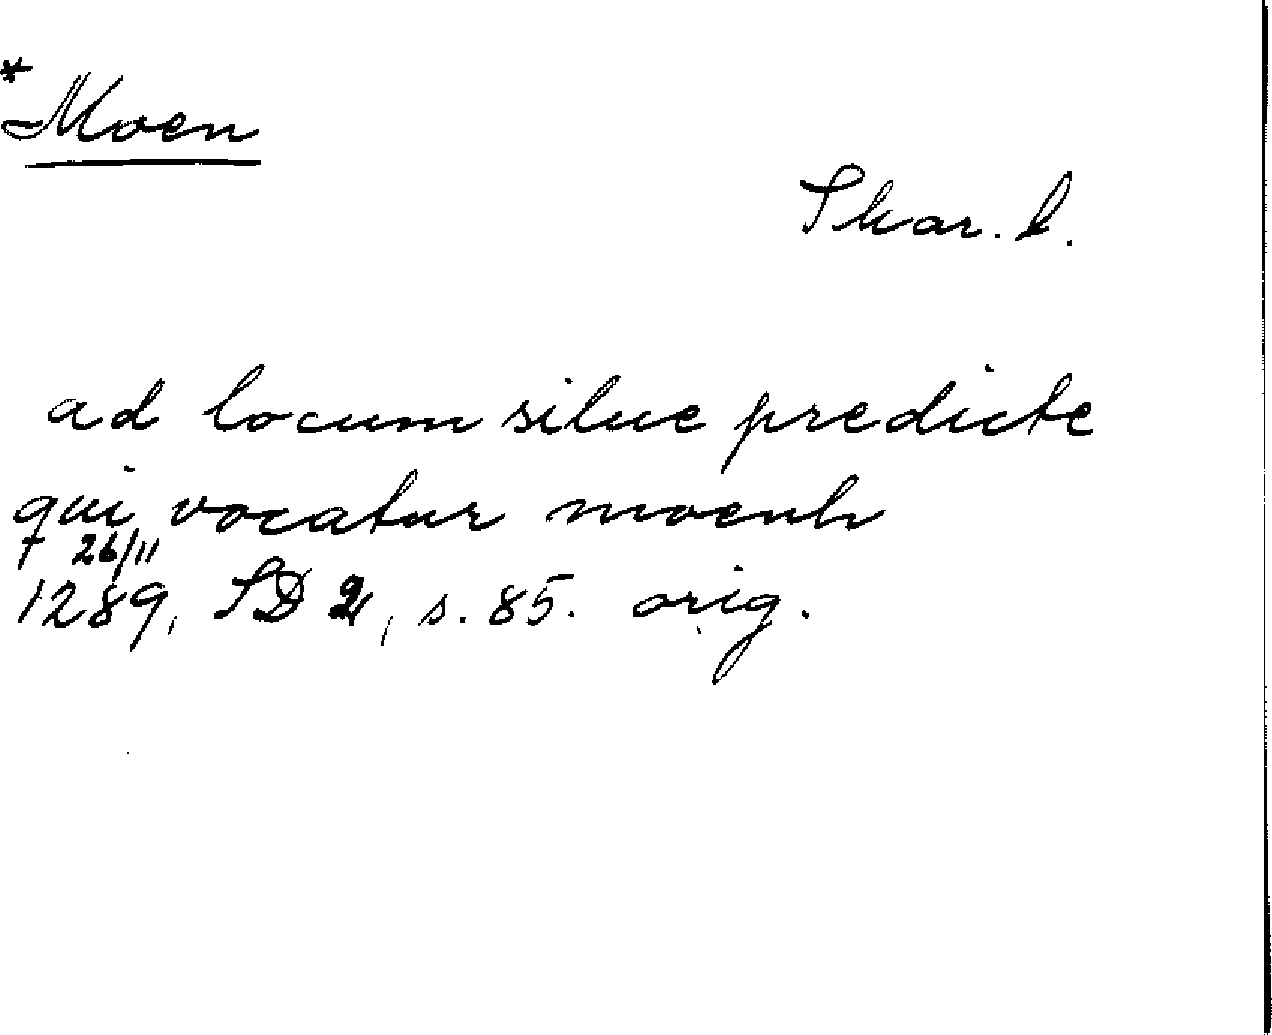 *Moen
Skar. l.
ad locum silue predicte
qui vocatur moenh
f 26/11
1289, SD 2, s. 85. orig.